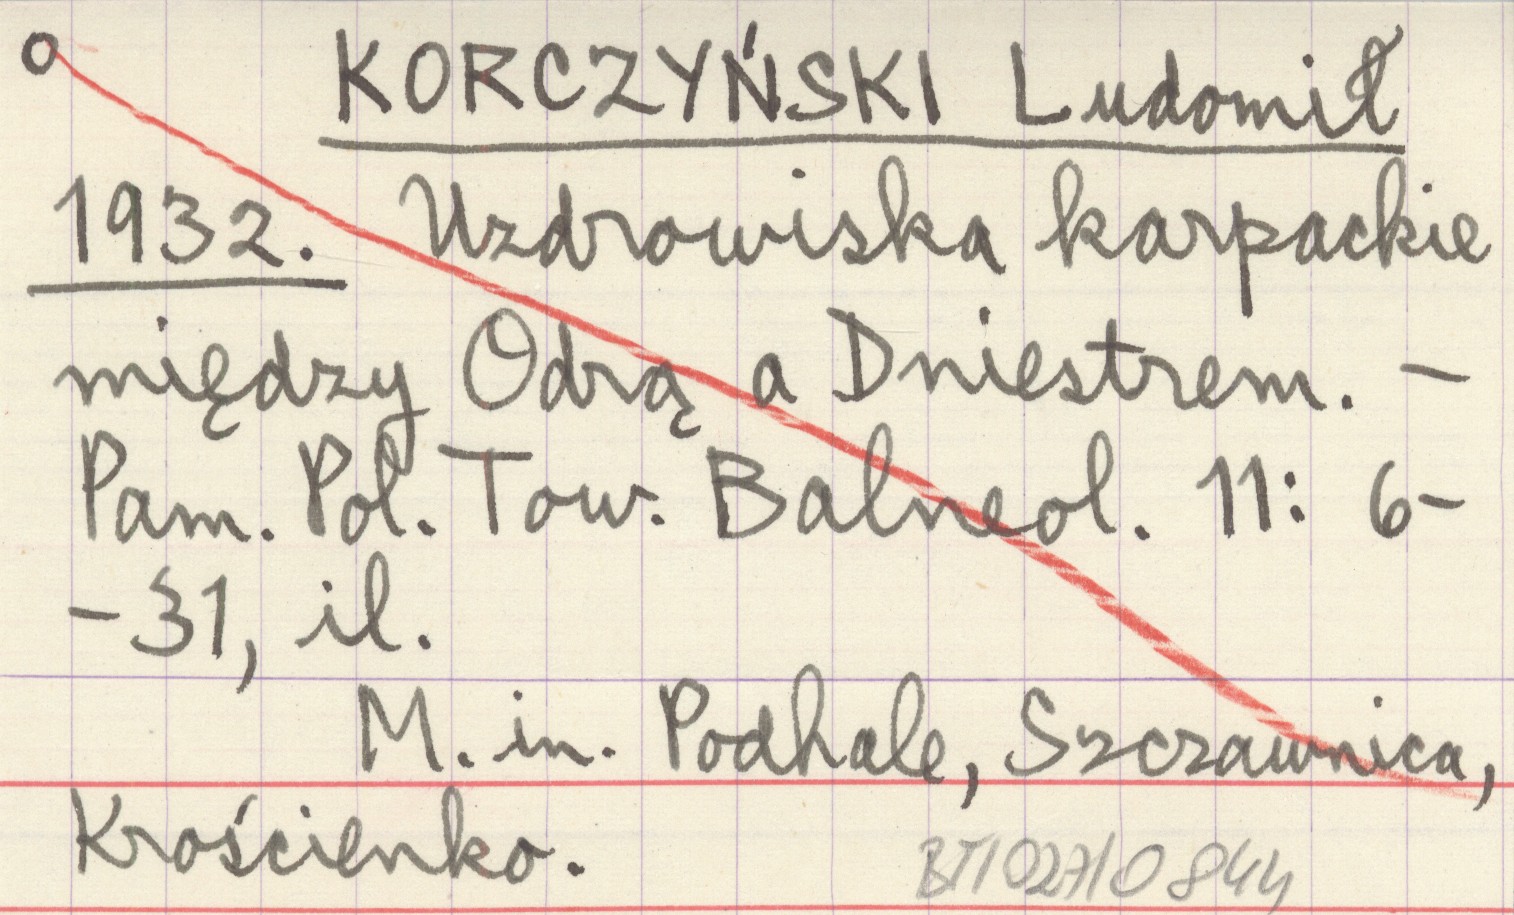 o KORCZYŃSKI Ludomił
1932. Uzdrowiska karpackie
między Odrą a Dniestrem. -
Pam. Pol. Tow. Balneol. 11: 6-
-31, il.
M. in. Podhale, Szczawnica,
Krościenko.
BT/027/0844